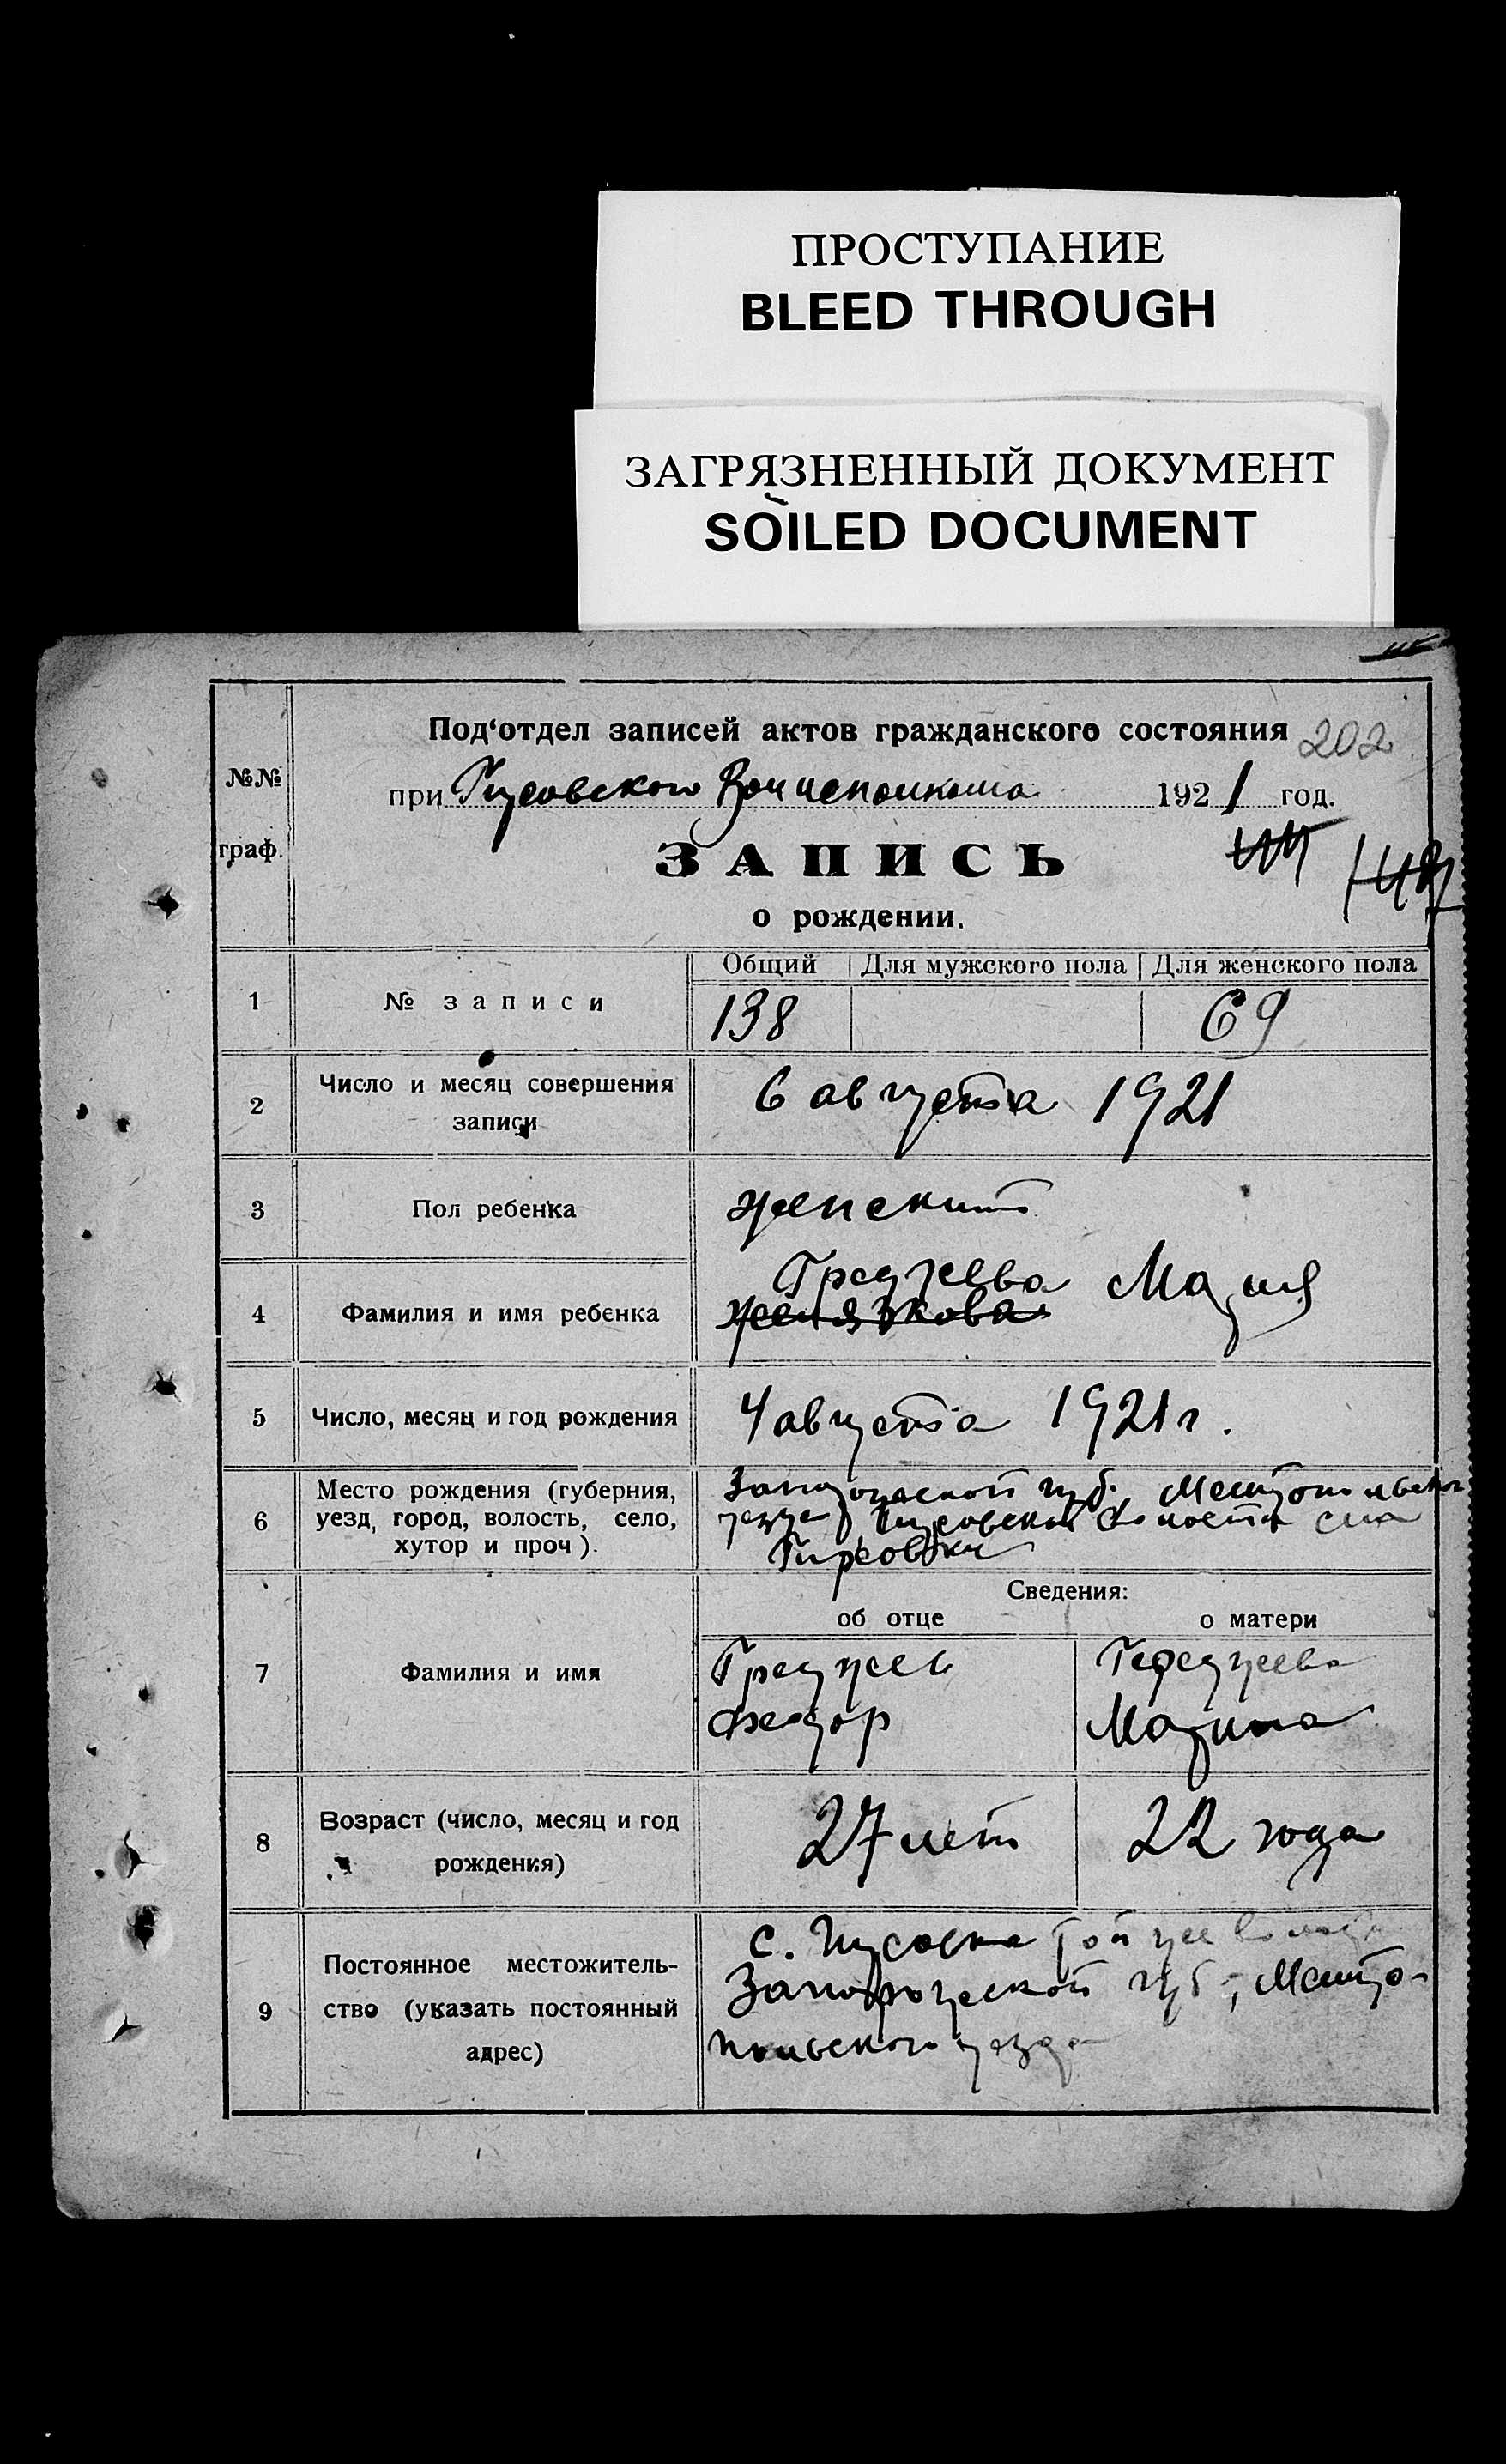 ПРОСТУПАНИЕ
BLEED THROUGH
ЗАГРЯЗНЕННЫЙ ДОКУМЕНТ
SOILED DOCUMENT
№№
граф.
Под‘отдел записей актов гражданского состояния 202
при Гирсовского Волисполкома 1921 год.
ЗАПИСЬ
о рождении.
Общий Для мужского пола Для женского пола
1 № записи 138 69
2 Число и месяц совершения
записи
6 августа 1921
3 Пол ребенка женский
4 Фамилия и имя ребенка
Мария
5 Число, месяц и год рождения 4 августа 1921 г.
6 Место рождения (губерния,
уезд, город, волость, село,
хутор и проч).
Запорожской губ. Мелитопольского
уезда Гирсовской волости села
Гирсовки
Сведения:
об отце о матери
7 Фамилия и имя
Федор Марина
8 Возраст (число, месяц и год
рождения)
27 лет 22 года
9 Постоянное местожитель-
ство (указать постоянный
адрес)
с. Гирсовка той же волости
Запорожской губ., Мелито-
польского уезда